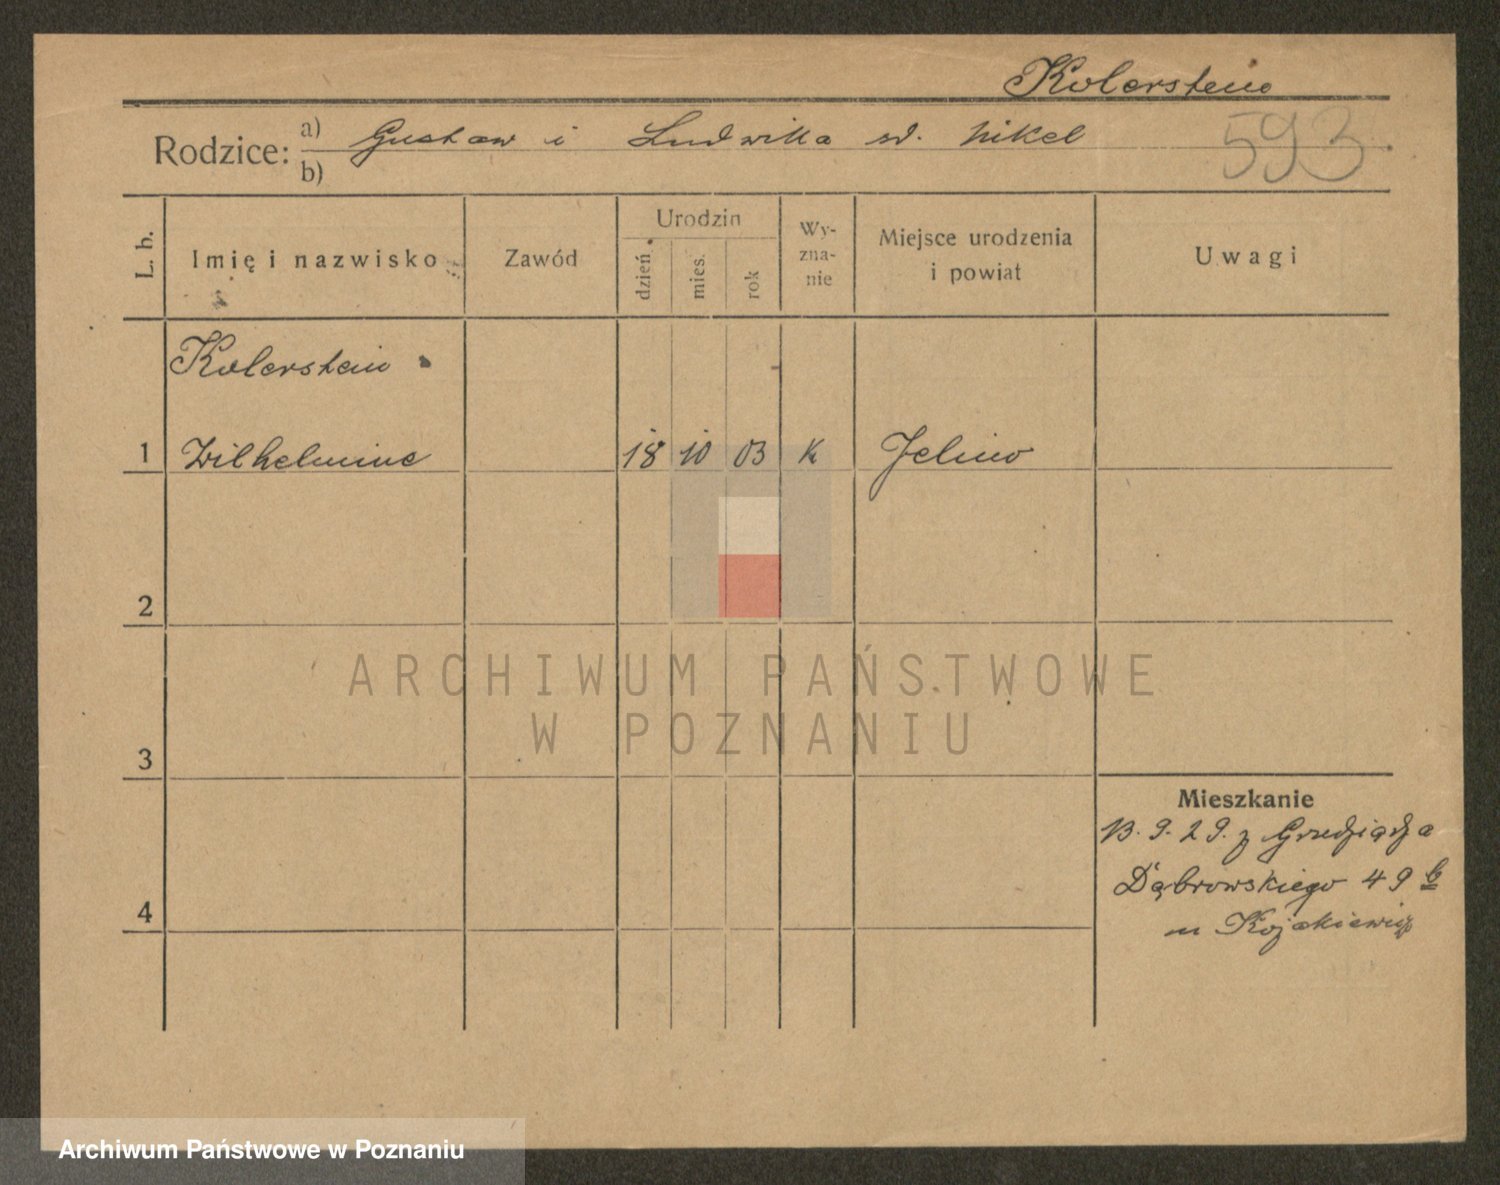 Kolerstein
Rodzice: a) b) Gustaw i Ludwika zd. Nikel
593
L. b.
Imię i nazwisko
Zawód
Urodzin
dzień
mies.
rok
Wy-
zna-
nie
Miejsce urodzenia
i powiat
Uwagi
Kolerstein
1 Wilhelmine 18 10 03 K Jelino
2
3
4
Mieszkanie
13. 9. 29. z Grudziądza
Dąbrowskiego 49 b
u Kojakiewicz
ARCHIWUM PAŃSTWOWE
W POZNANIU
Archiwum Państwowe w Poznaniu